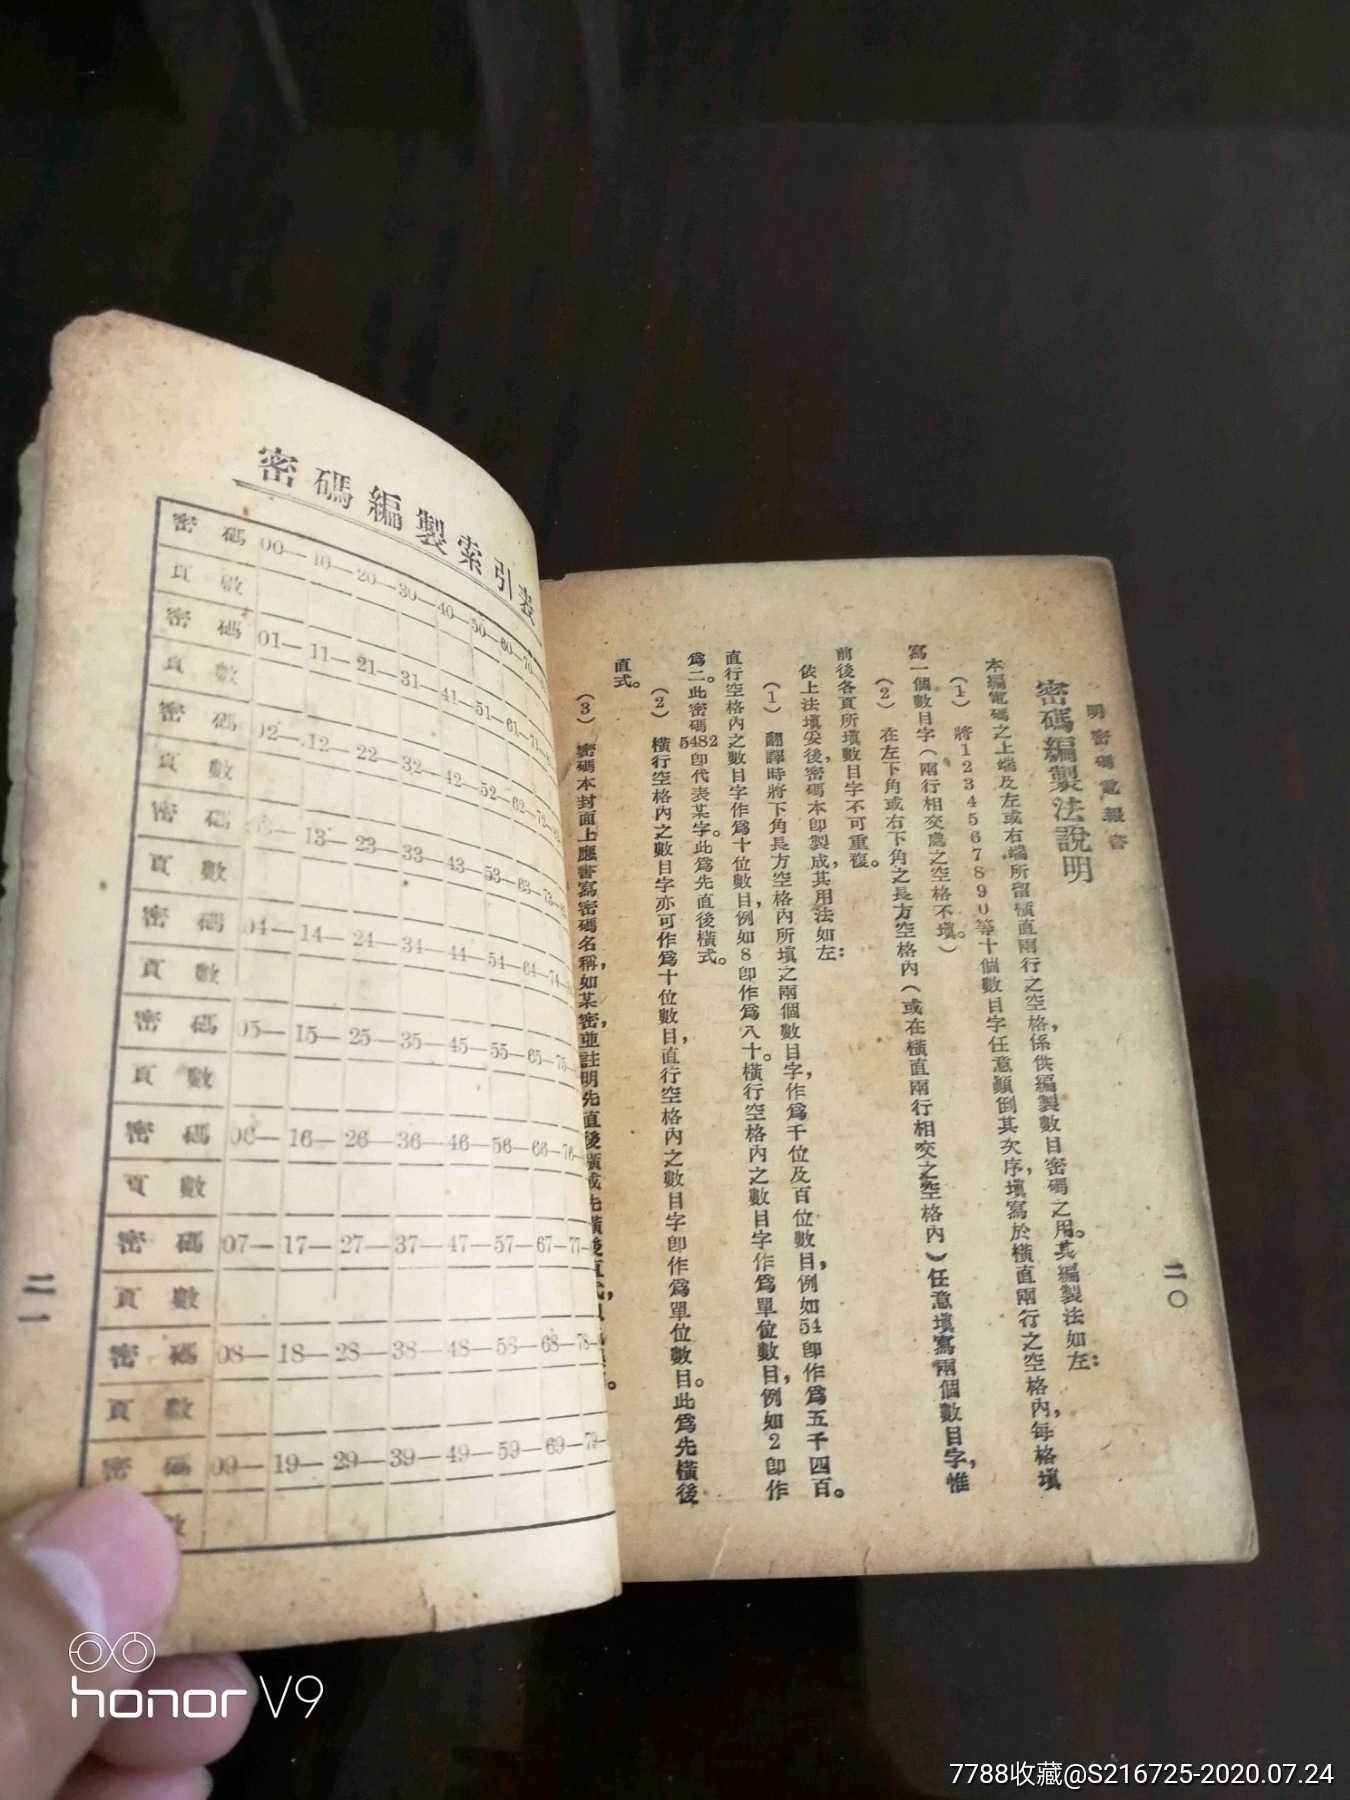 明密碼電報書
二〇
密碼編製法說明
本編電碼之上端及左或右端所留橫直兩行之空格，係供編製數目密碼之用。其編製法如左：
（1） 將1234567890等十個數目字任意顛倒其次序，填寫於橫直兩行之空格內，每格填
寫一個數目字（兩行相交處之空格不填。）
（2） 在左下角或右下角之長方空格內（或在橫直兩行相交之空格內）任意填寫兩個數目字，惟
前後各頁所填數目字不可重複。
依上法填妥後，密碼本卽製成，其用法如左：
（1） 翻譯時將下角長方空格內所填之兩個數目字，作爲千位及百位數目，例如54卽作爲五千四百。
直行空格內之數目字作爲十位數目，例如8卽作爲八十。橫行空格內之數目字作爲單位數目，例如2卽作
爲二。此密碼5482卽代表某字。此爲先直後橫式。
（2） 橫行空格內之數目字亦可作爲十位數目，直行空格內之數目字卽作爲單位數目。此爲先橫後
直式。
（3） 密碼本封面上應書寫密碼名稱，如某密，並註明先直後橫或先橫後直式，
密碼編製索引表
密碼 00— 10— 20— 30— 40— 50— 60— 70
頁數
密碼 01— 11— 21— 31— 41— 51— 61— 71
頁數
密碼 02— 12— 22— 32— 42— 52— 62— 72
頁數
密碼 03— 13— 23— 33— 43— 53— 63— 73
頁數
密碼 04— 14— 24— 34— 44— 54— 64— 74
頁數
密碼 05— 15— 25— 35— 45— 55— 65— 75
頁數
密碼 06— 16— 26— 36— 46— 56— 66— 76
頁數
密碼 07— 17— 27— 37— 47— 57— 67— 77
頁數
密碼 08— 18— 28— 38— 48— 58— 68— 78
頁數
密碼 09— 19— 29— 39— 49— 59— 69— 79
數
二一
honor V9
7788收藏@S216725-2020.07.24